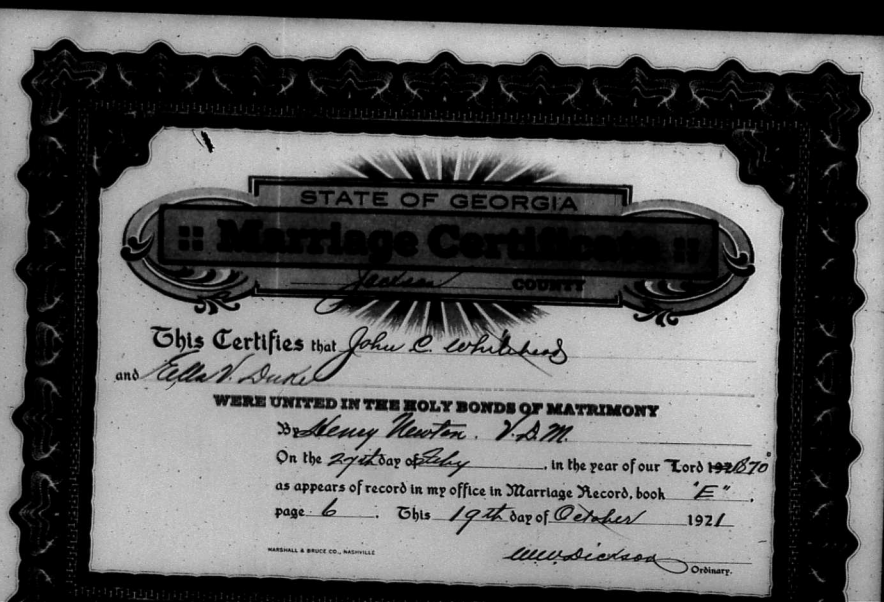 STATE OF GEORGIA
Marriage Certificate
Jackson COUNTY
This Certifies that John C. Whitehead
and Ella V. Duke
WERE UNITED IN THE HOLY BONDS OF MATRIMONY
By Henry Newton. V.D.M.
On the 27th day of Feby, in the year of our Lord 1921 1870
as appears of record in my office in Marriage Record, book "E",
page 6. This 19th day of October 1921
W.W. Dickson
MARSHALL & BRUCE CO., NASHVILLE
Ordinary.